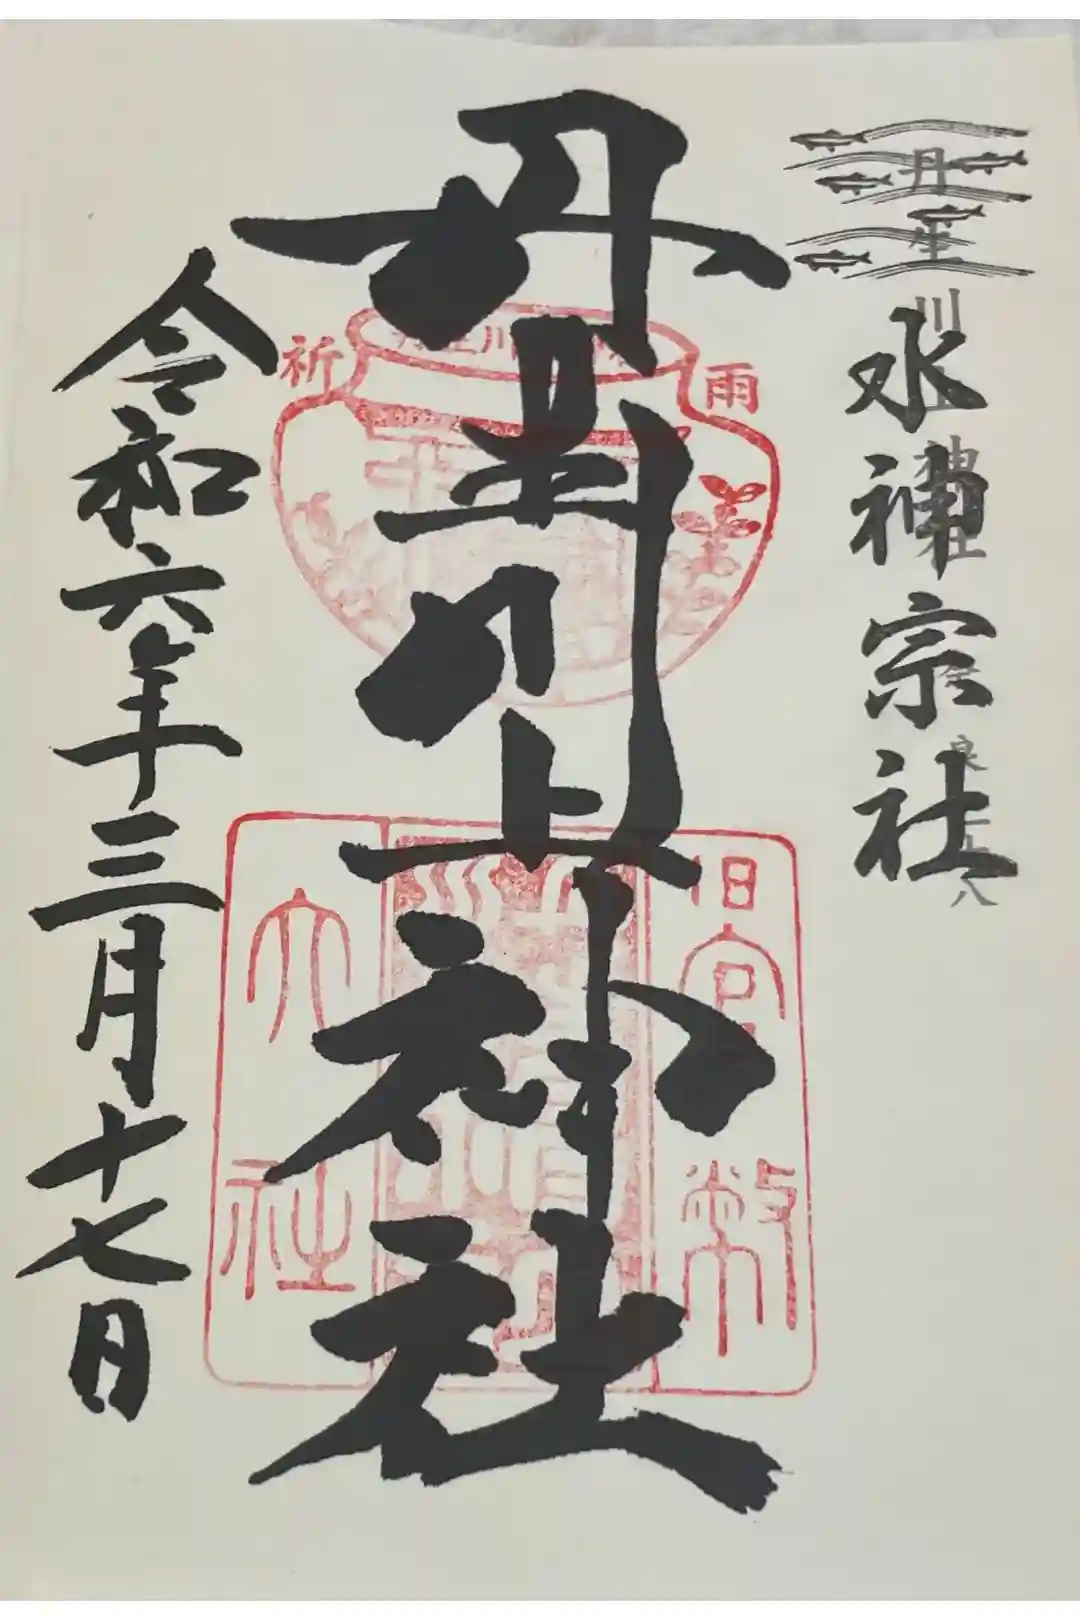 水神宗社
丹生川上神社
令和六年三月十七日
丹生川上神社
祈
雨
旧官幣
大社